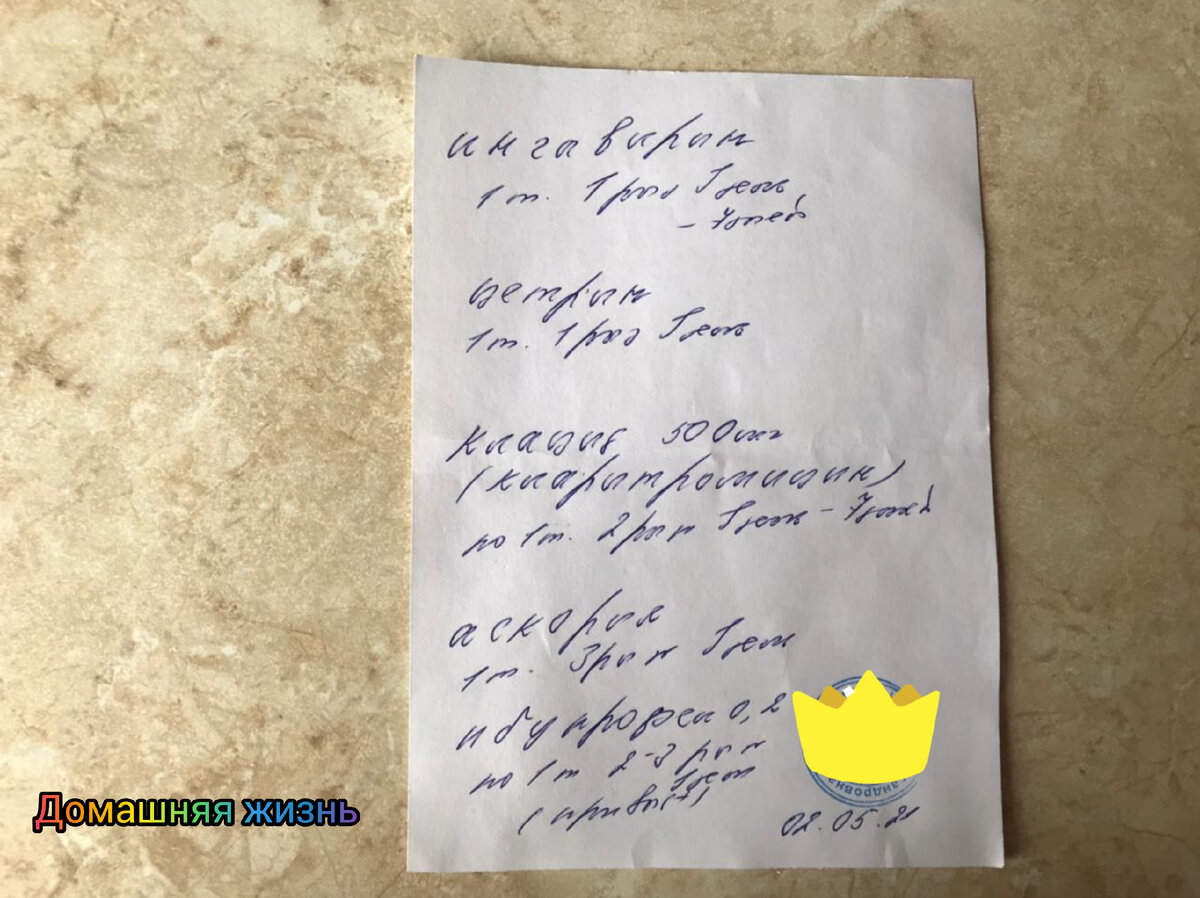 ингавирин
1 т. 1 раз в день
- 7 дней
цетрин
1 т. 1 раз в день
Клацид 500 мг
(кларитромицин)
по 1 т. 2 раза в день - 7 дней
аскорил
1 т. 3 раза в день
ибупрофен 0,2
по 1 т 2-3 раза
в день
(при
02.05.21
Домашняя жизнь